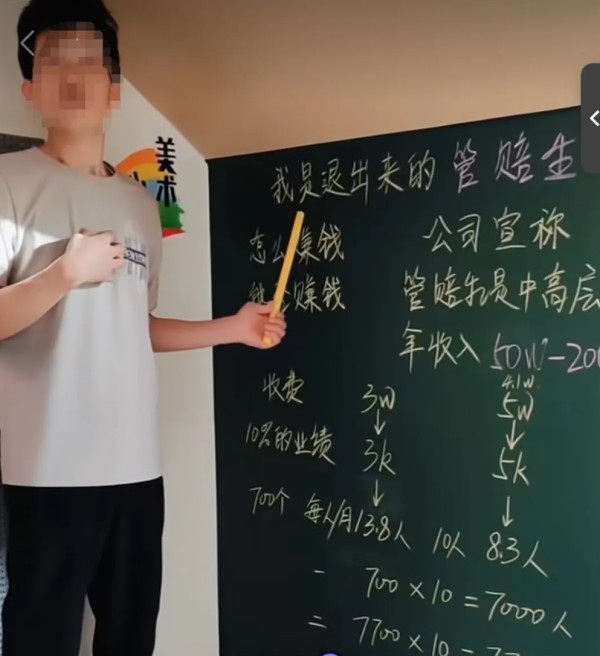 美术
我是退出来的管赔生
怎么赚钱 公司宣称
能否赚钱 管赔生是中高层
年收入 50W-200
4.1w
收费 3W 5W
10%的业绩 3k 5k
700个 每人/月 13.8人 10人 8.3人
- 700×10=7000人
= 7700×10=77